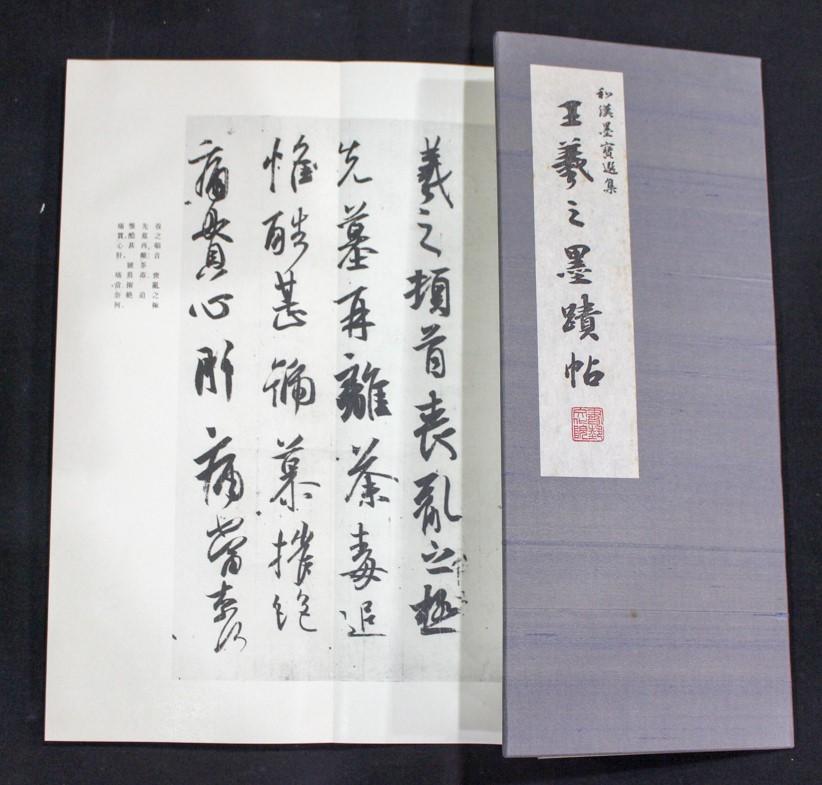 和漢墨寶選集
王羲之墨蹟帖
羲之頓首喪亂之極
先墓再離荼毒追
惟酷甚號慕摧絶
痛貫心肝痛當奈何
羲之頓首 喪亂之極
先墓再離荼毒 追
惟酷甚 號慕摧絶
痛貫心肝、痛當奈何、